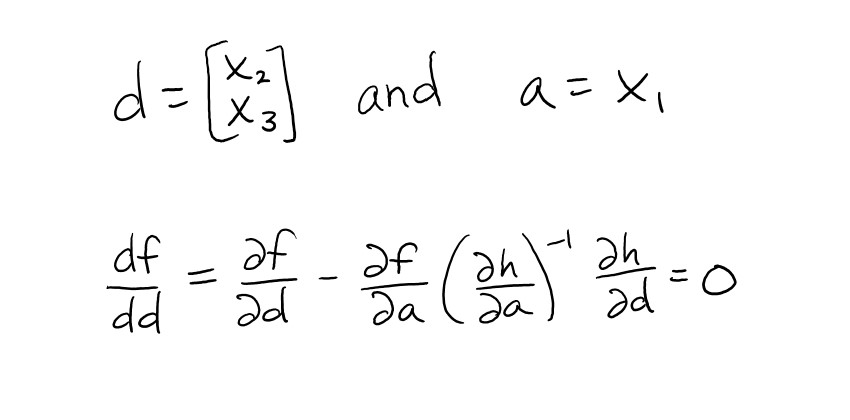 d = [x₂ x₃] and a = x₁
df/dd = ∂f/∂d - ∂f/∂a (∂h/∂a)⁻¹ ∂h/∂d = 0